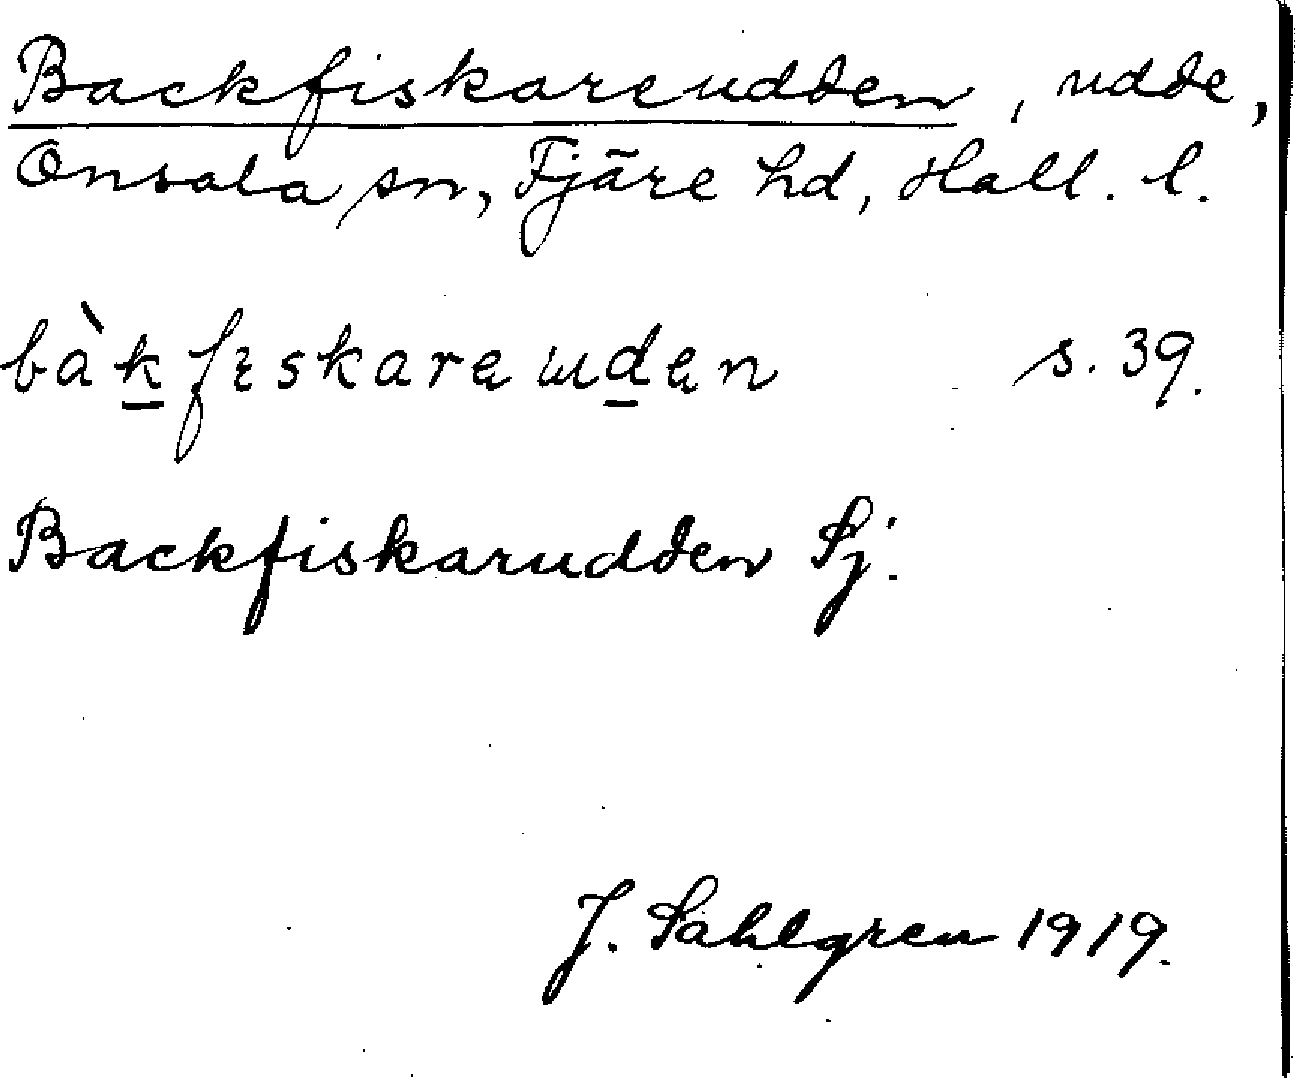 Backfiskareudden, udde,
Onsala sn, Fjäre hd, Hall. l.
bàkfɪskareɯden s. 39.
Backfiskarudden Sj.
J. Sahlgren 1919.